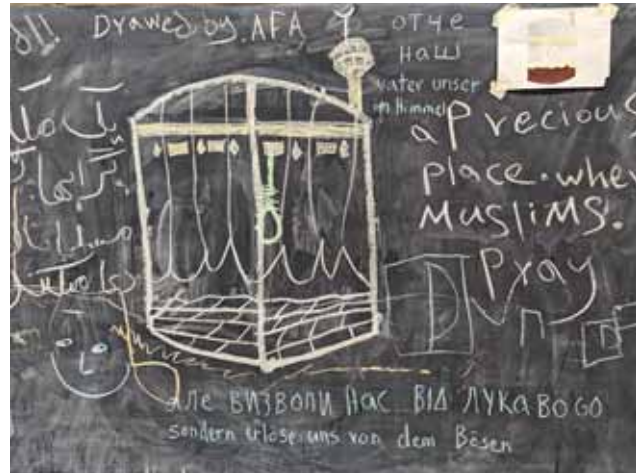 Drawed by. AFA
отче
наш
vater unser
im Himmel
a Precious
place.
MUSLIMS.
Pray
یک
але ВИЗВОЛИ НАС ВІД ЛУКАВОGO
sondern erlöse uns von dem Bösen